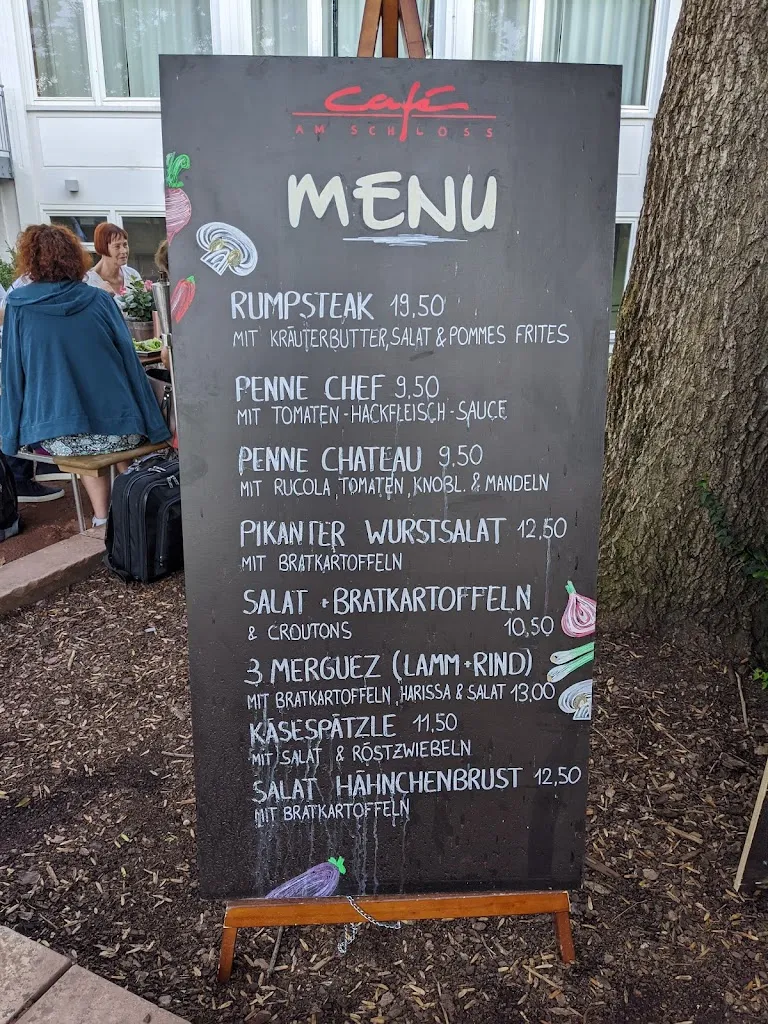 Café
AM SCHLOSS
MENU
RUMPSTEAK 19,50
MIT KRÄUTERBUTTER, SALAT & POMMES FRITES
PENNE CHEF 9,50
MIT TOMATEN-HACKFLEISCH-SAUCE
PENNE CHATEAU 9,50
MIT RUCOLA, TOMATEN, KNOBL. & MANDELN
PIKANTER WURSTSALAT 12,50
MIT BRATKARTOFFELN
SALAT + BRATKARTOFFELN
& CROUTONS 10,50
3 MERGUEZ (LAMM+RIND)
MIT BRATKARTOFFELN, HARISSA & SALAT 13,00
KÄSESPÄTZLE 11,50
MIT SALAT & RÖSTZWIEBELN
SALAT HÄHNCHENBRUST 12,50
MIT BRATKARTOFFELN